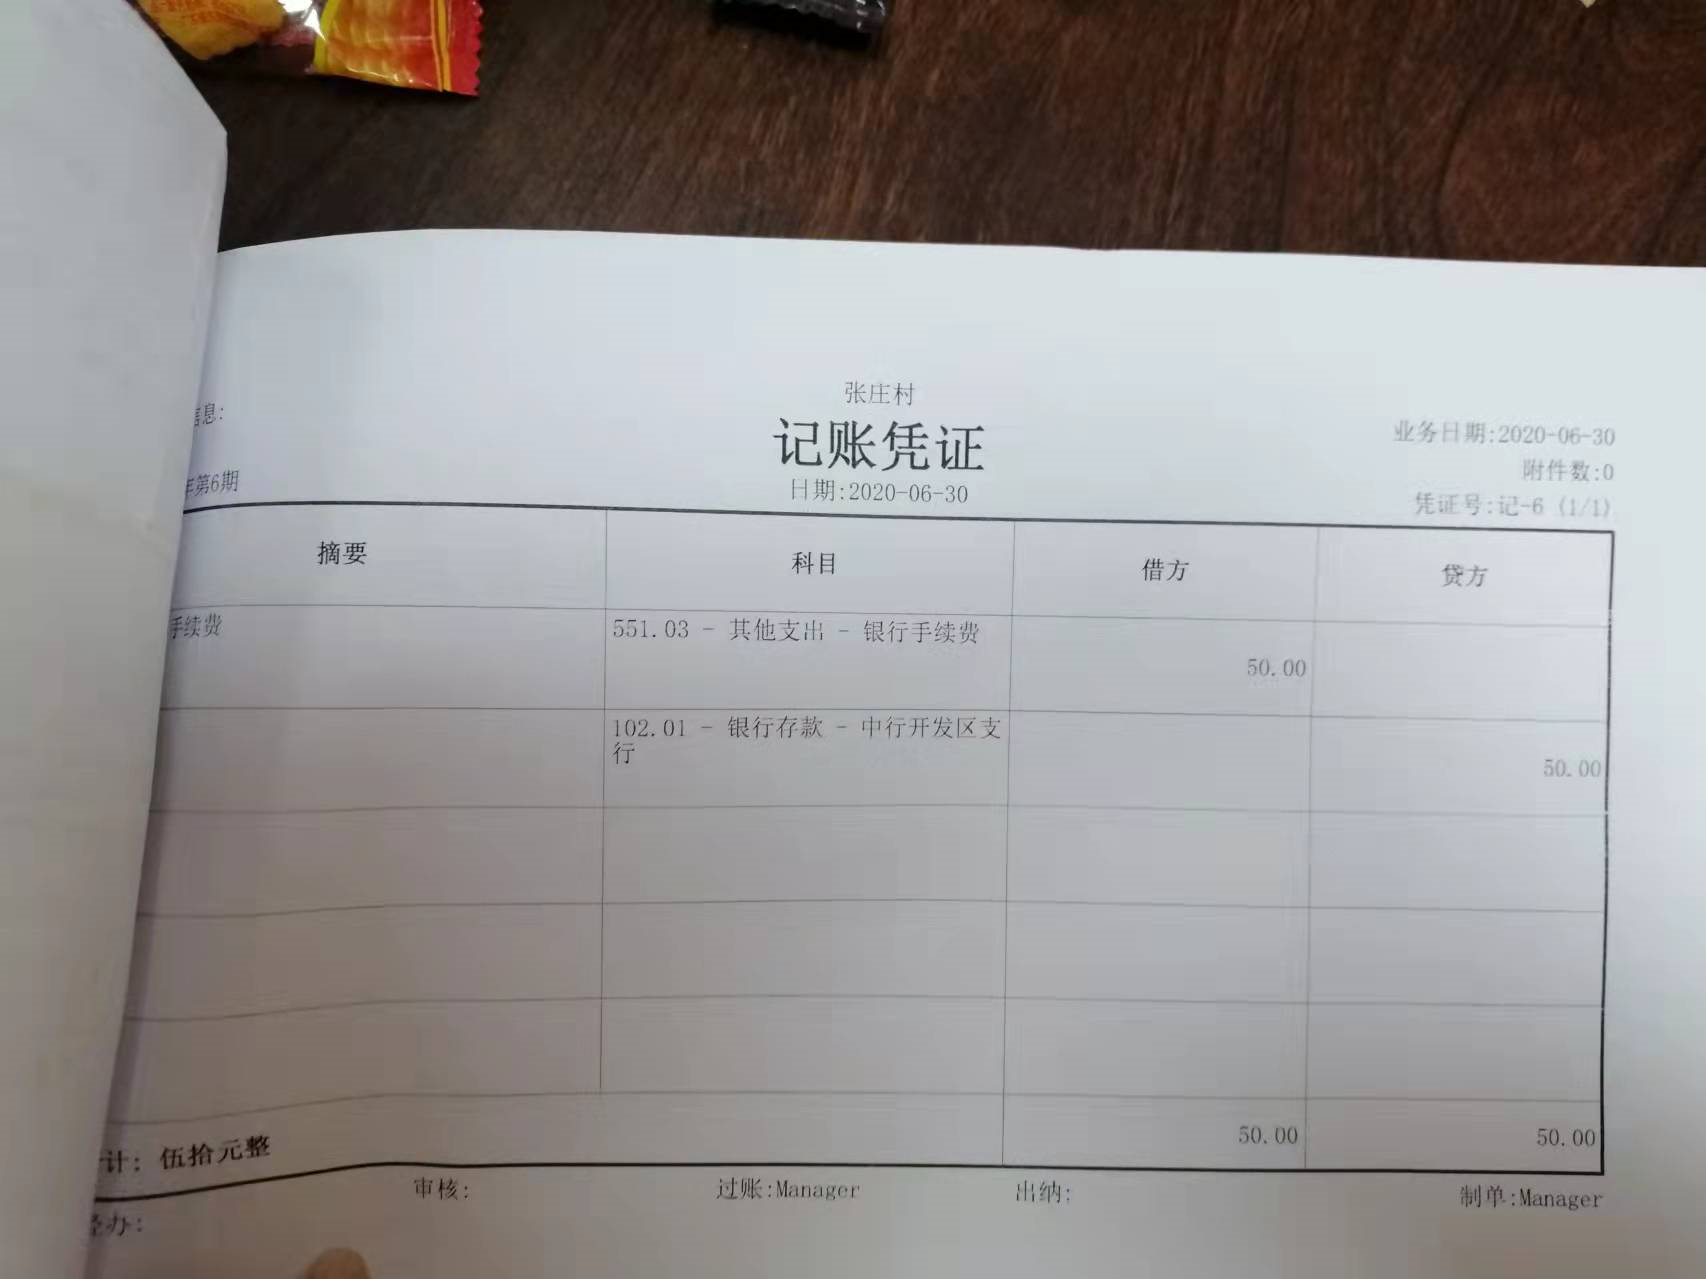 张庄村
信息:
记账凭证
业务日期:2020-06-30
附件数:0
年第6期
日期:2020-06-30
凭证号:记-6 (1/1)
摘要 科目 借方 贷方
手续费 551.03 - 其他支出 - 银行手续费 50.00
102.01 - 银行存款 - 中行开发区支
行 50.00
计: 伍拾元整 50.00 50.00
审核: 过账:Manager 出纳: 制单:Manager
经办: